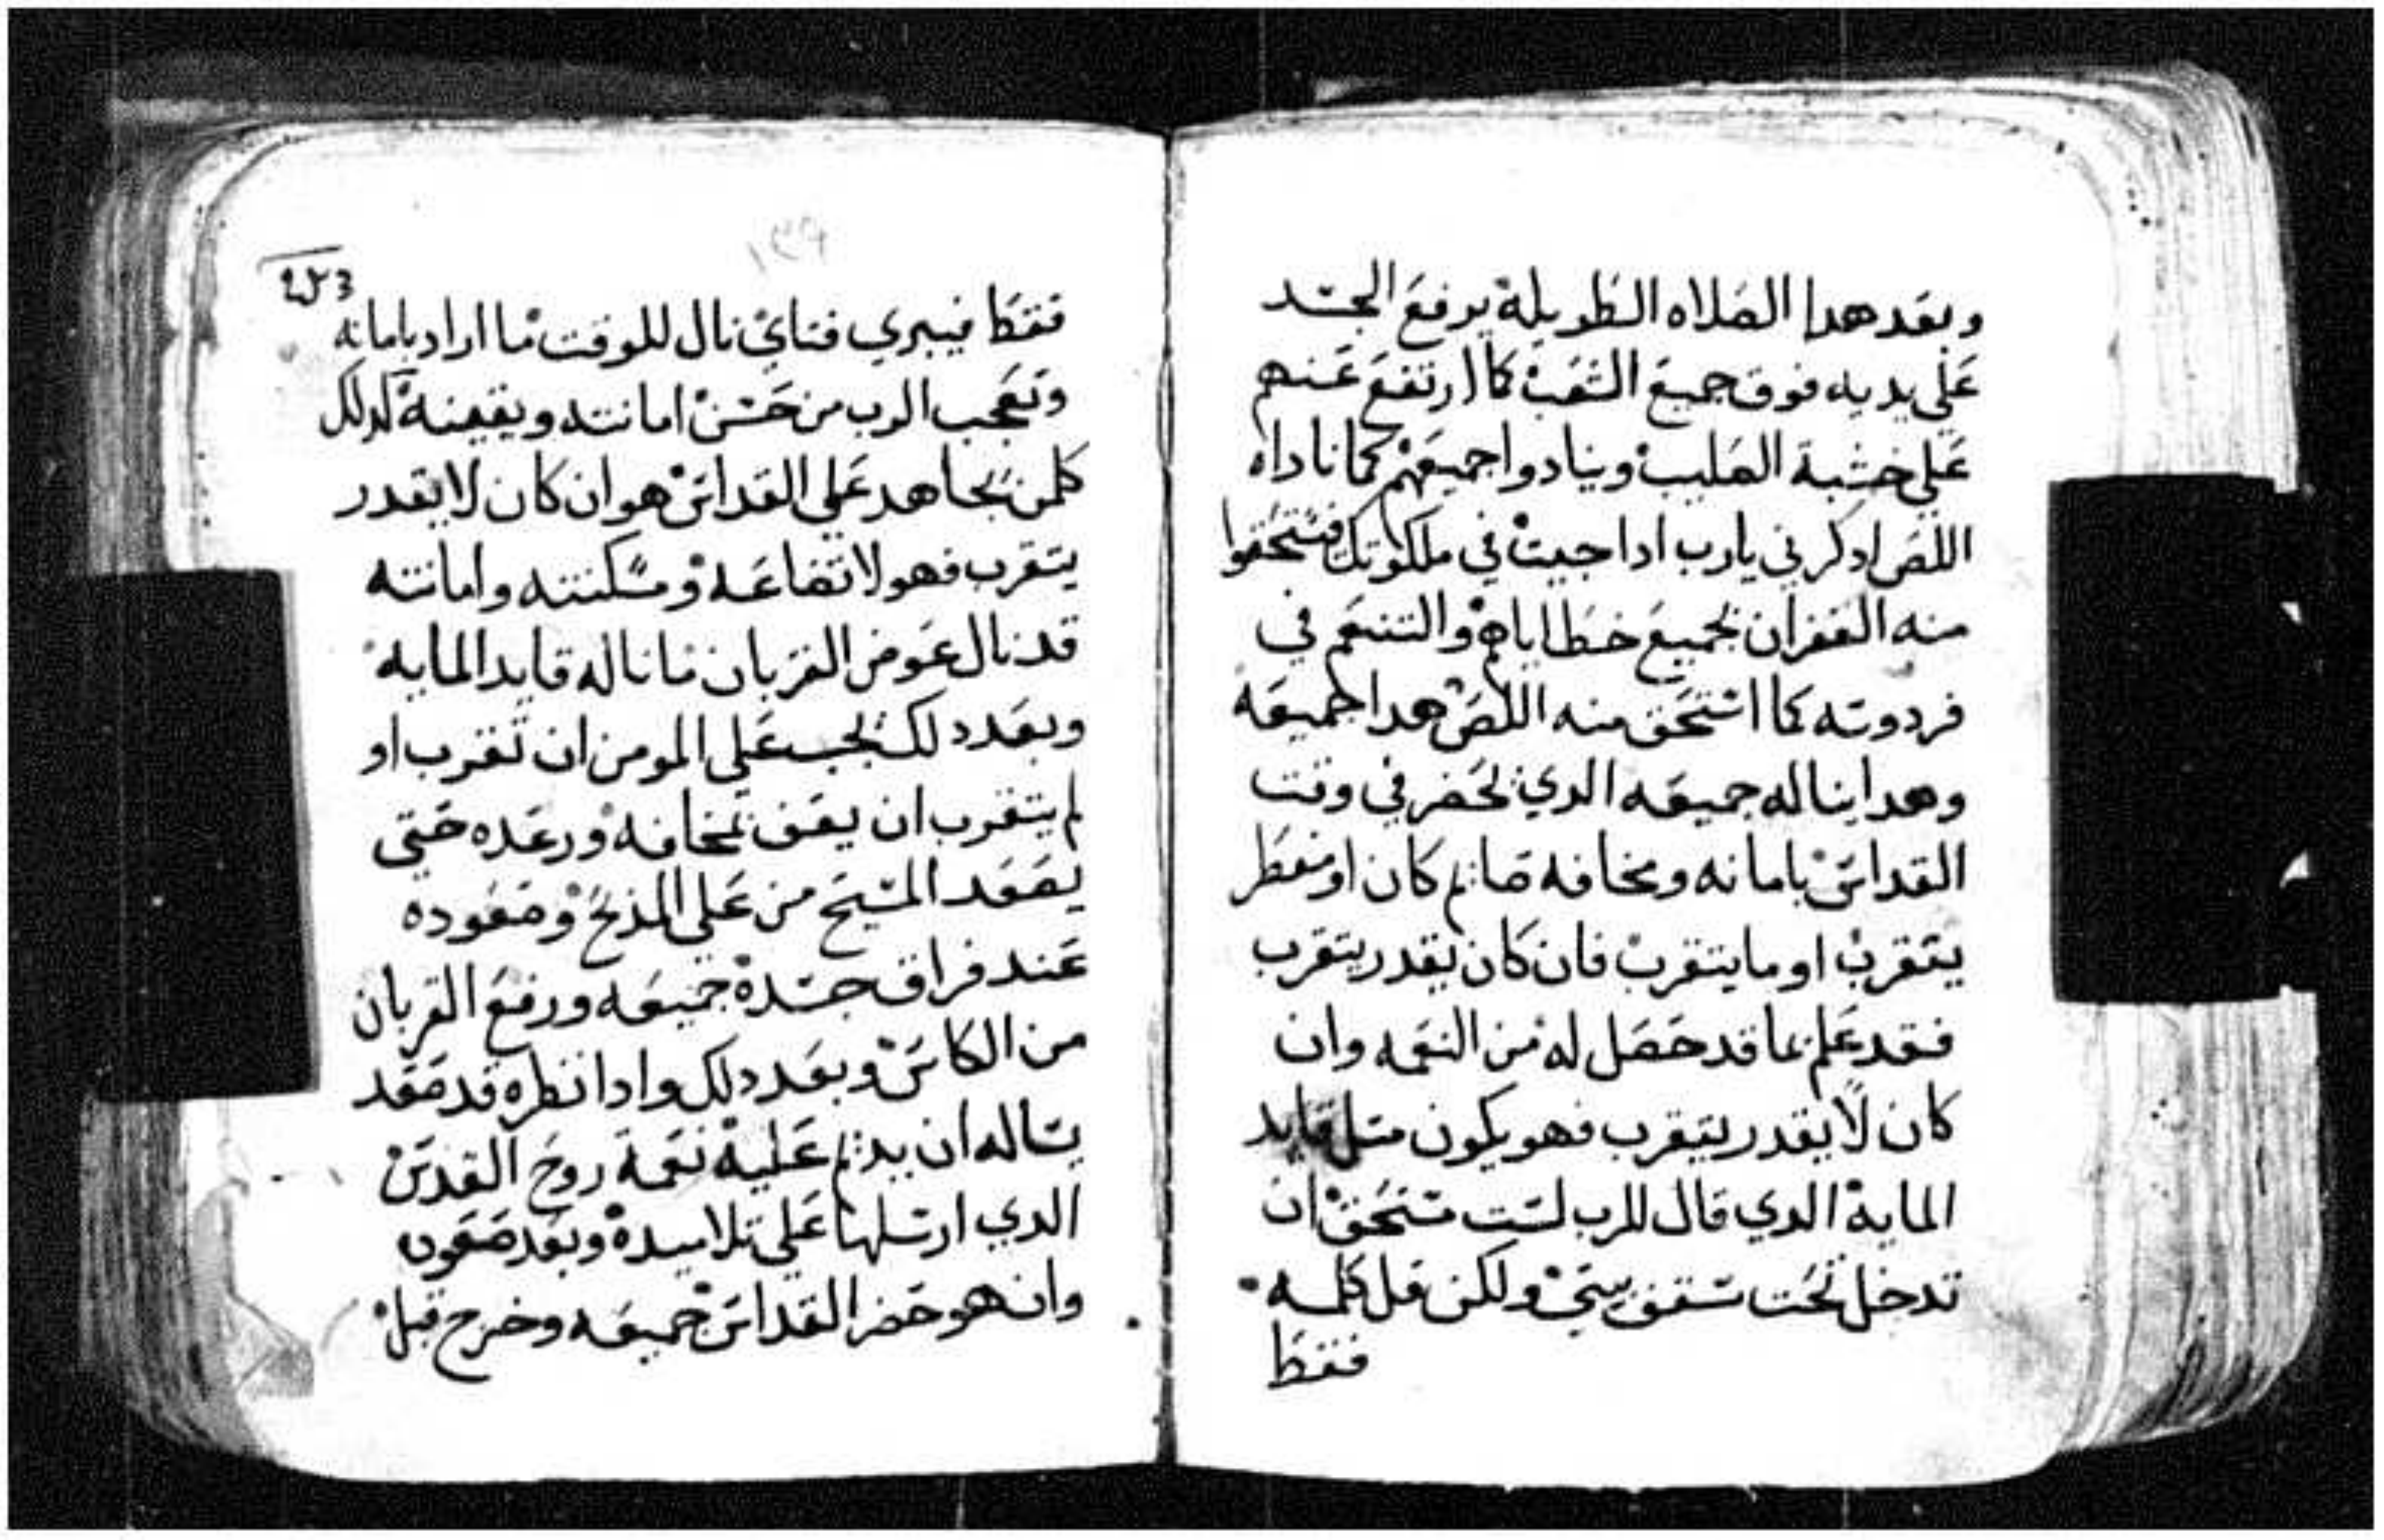 وبعد هدا الصلاه الطويلة يرفع الجسد
علي يديه فوق جميع الشعب كما ارتفع عنهم
علي خشبة الصليب وينادوا جميعهم كما ناداه
اللص ادكرني يارب ادا جيت في ملكوتك فيستحقوا
منه الغفران لجميع خطاياهم والتنعم في
فردوسه كما استحق منه اللص هدا جميعه
وهدا يناله جميعه الدي يحضر في وقت
القداس بامانه ومخافه صايم كان او مفطر
يتقرب او ما يتقرب فان كان يقدر يتقرب
فقد علم بما قد حصل له من النعمه وان
كان لا يقدر يتقرب فهو يكون متل قايد
الماية الدي قال للرب لست مستحق ان
تدخل تحت سقف بيتي ولكن قل كلمه
فقط
١٣٩
فقط فيبري فتاي نال للوقت ما اراد بامانه
وتعجب الرب من حسن امانته ويقينه كدلك
كلمن يجاهد علي القداس هو ان كان لا يقدر
يتقرب فهو لاتضاعه ومسكنته وامانته
قد نال عوض القربان ما ناله قايد المايه
وبعد دلك يجب علي المومن ان تقرب او
لم يتقرب ان يقف بمخافه ورعده حتي
يصعد المسيح من علي المذبح وصعوده
عند فراق جسده جميعه ورفع القربان
من الكاس وبعد دلك وادا نظره قد صعد
يساله ان يديم عليه نعمة روح القدس
الدي ارسلها علي تلاميده وبعد صعوده
وان هو حضر القداس جميعه وخرج قبل